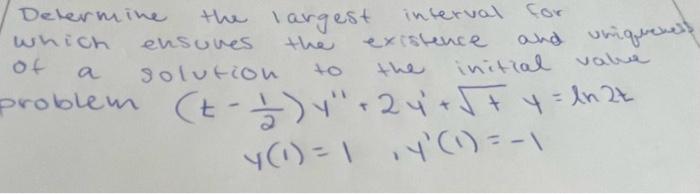 Determine the largest interval for
which ensures the existence and uniqueness
of a solution to the initial value
problem (t - 1/2) y'' + 2y' + √t y = ln 2t
y(1) = 1 , y'(1) = -1